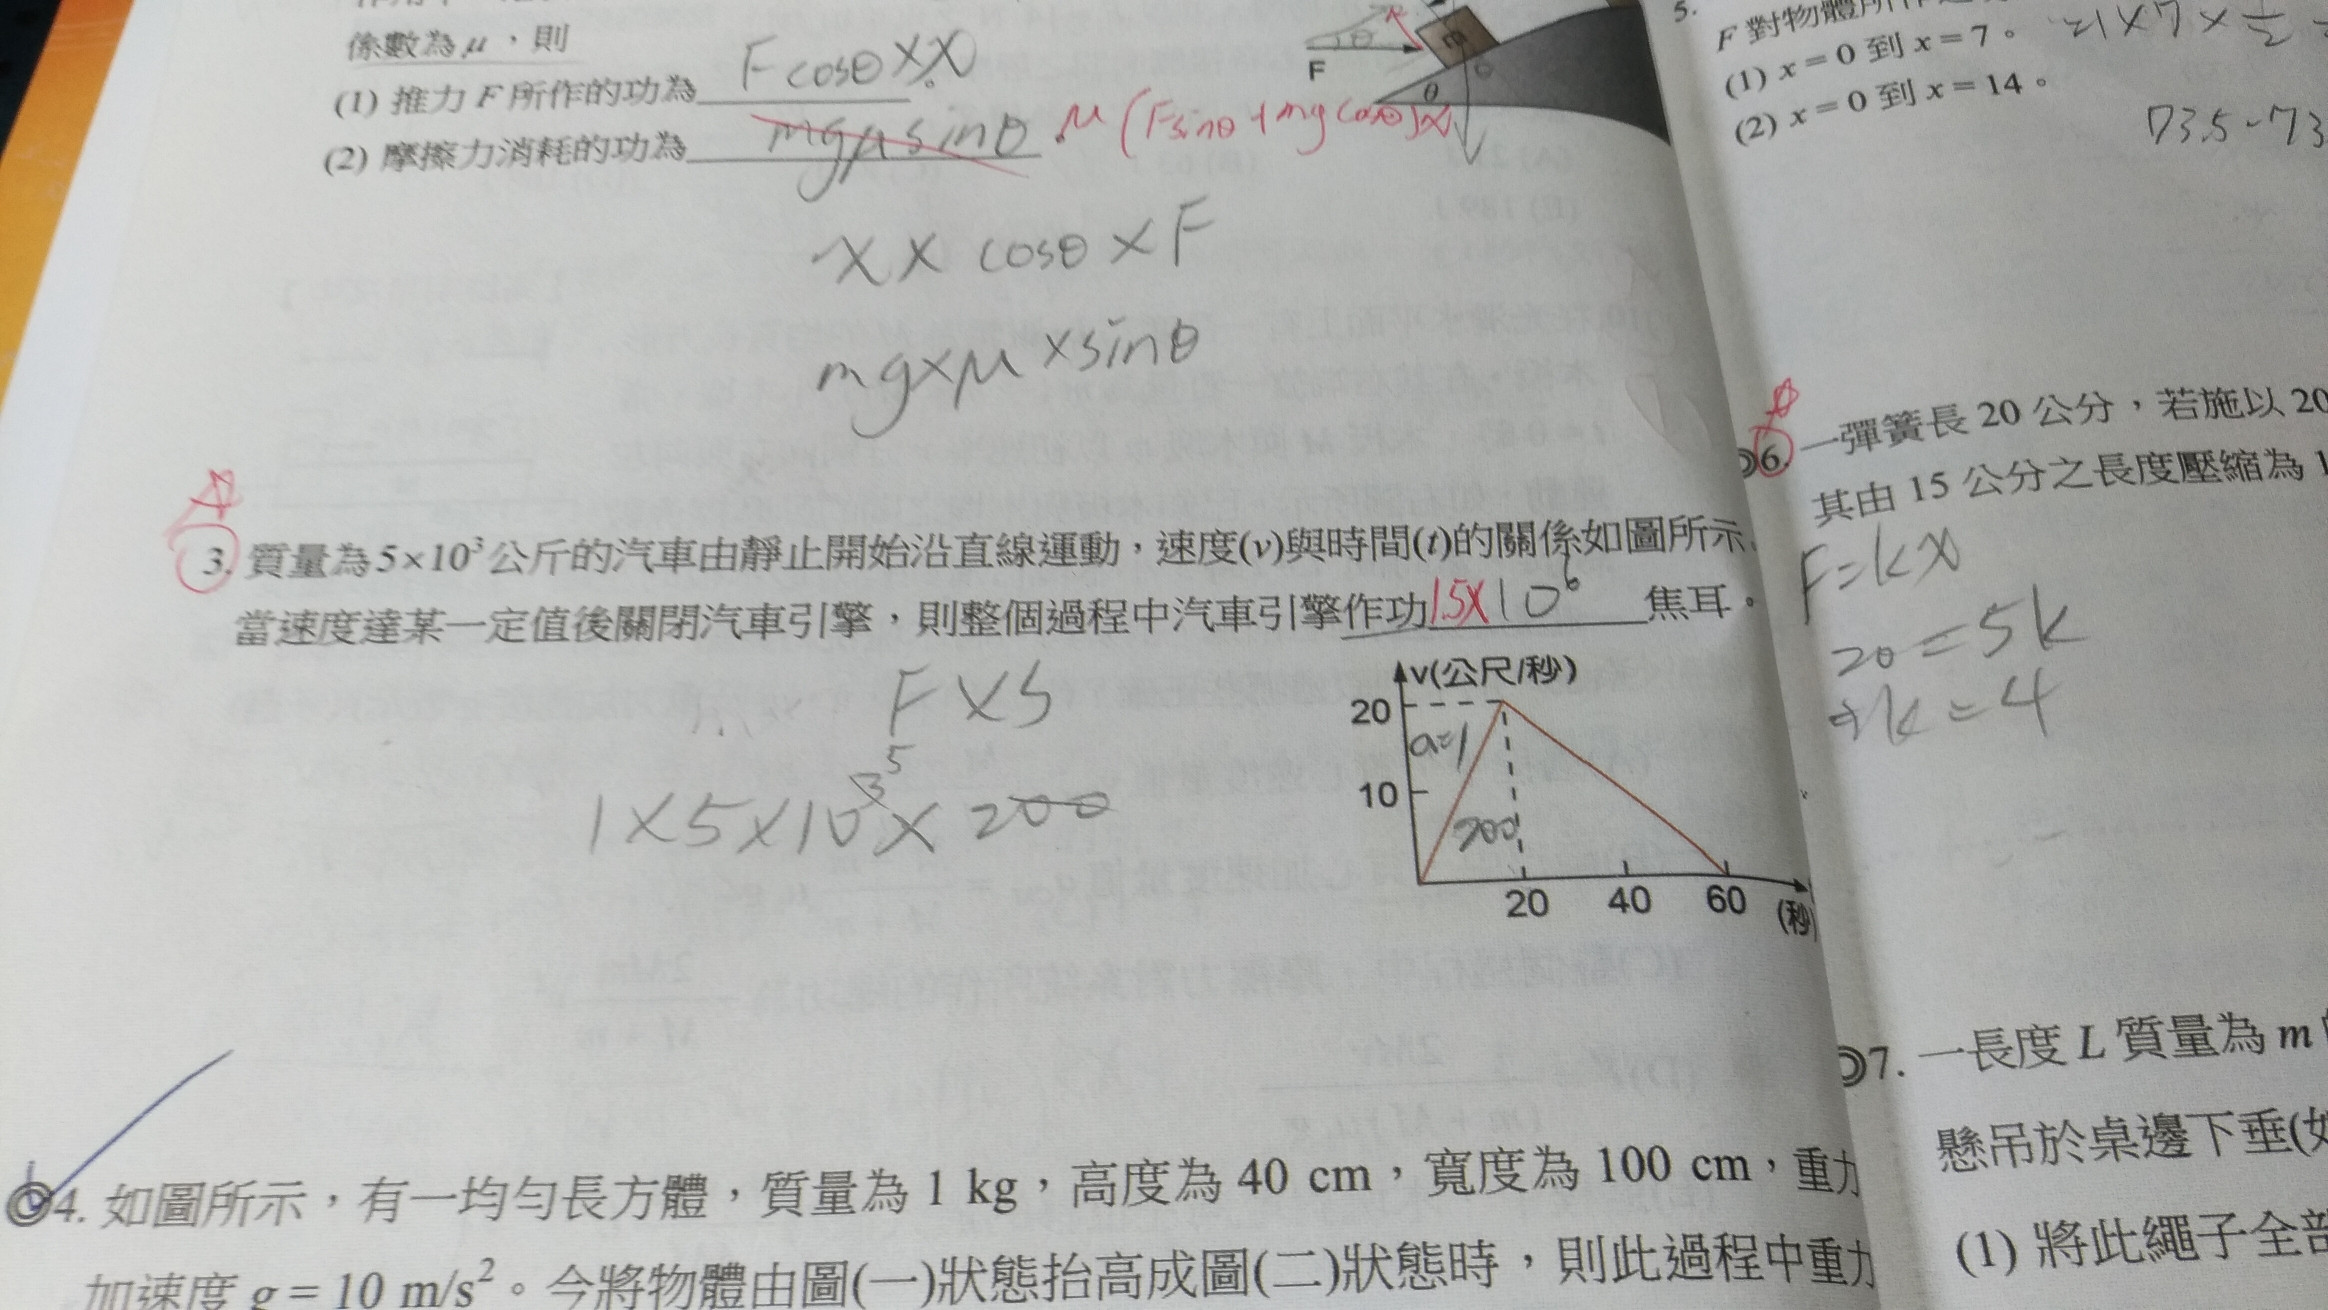 係數為 μ，則
(1) 推力 F 所作的功為 F cosθ × X 。
(2) 摩擦力消耗的功為 mgμsinθ . μ(Fsinθ+mg cosθ)x
F
θ
x × cosθ × F
mg×μ×sinθ
3. 質量為5×10³公斤的汽車由靜止開始沿直線運動，速度(v)與時間(t)的關係如圖所示
當速度達某一定值後關閉汽車引擎，則整個過程中汽車引擎作功1.5×10⁶焦耳。
F×S
1×5×10³×200
5
v(公尺/秒)
20
a=1
10
200
20 40 60 (秒)
4. 如圖所示，有一均勻長方體，質量為 1 kg，高度為 40 cm，寬度為 100 cm，重力
加速度 g = 10 m/s²。今將物體由圖(一)狀態抬高成圖(二)狀態時，則此過程中重力
5.
F 對物體所作
(1) x = 0 到 x = 7。 21×7×½
(2) x = 0 到 x = 14。
73.5-73
6. 一彈簧長 20 公分，若施以 20
其由 15 公分之長度壓縮為 1
F=kx
20=5k
k=4
7. 一長度 L 質量為 m
懸吊於桌邊下垂(如
(1) 將此繩子全部